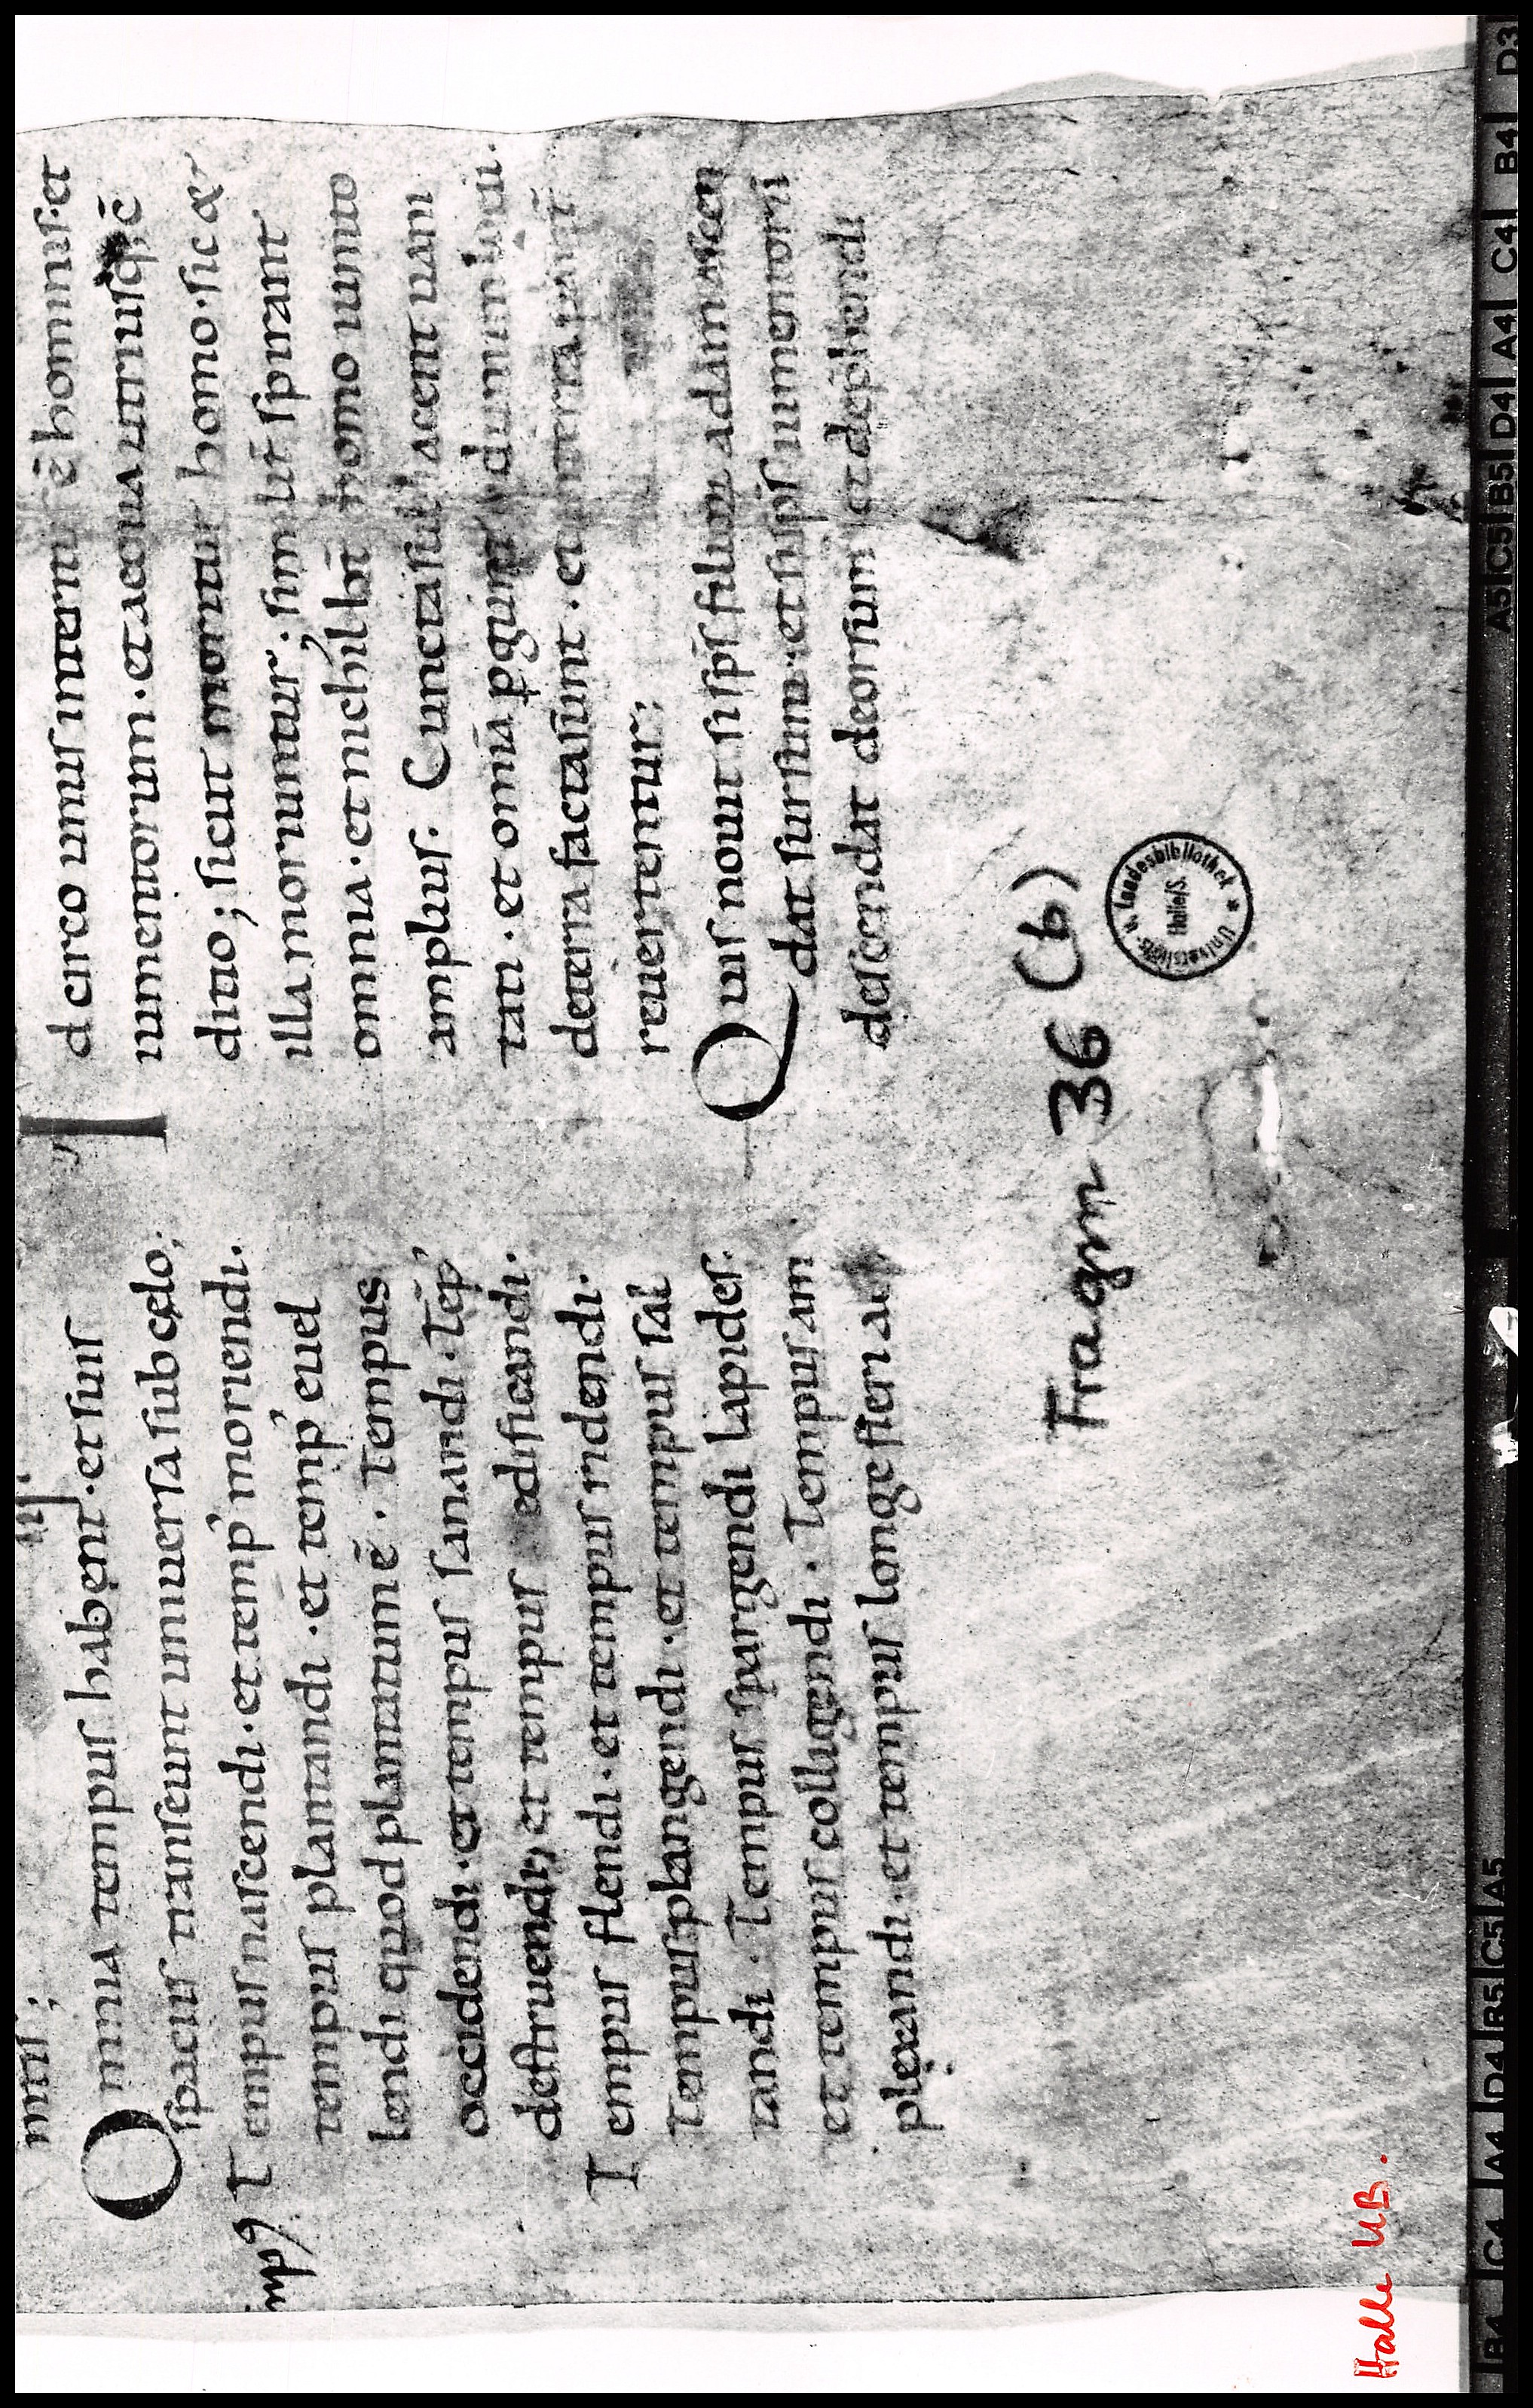 mus;
Omnia tempus habent. et suis
spaciis transeunt universa sub cęlo;
Tempus nascendi. et temp' moriendi.
tempus plantandi. et temp' evel
lendi quod plantatum ē. Tempus
occidendi. et tempus sanandi. Tēp'
destruendi, et tempus edificandi.
Tempus flendi. et tempus ridendi.
Tempus plangendi. et tempus sal
tandi. Tempus spargendi lapides.
et tempus colligendi. Tempus am
plexandi. et tempus longe fieri a
Id circo unus interitus ē hominis. et
iumentorum. et aequa utriusq; cō
ditio; sicut moritur homo. sic &
illa moriuntur; sim lit spirant
omnia. et nichil ht homo iumto
amplius: Cuncta subiacent vani
tati. et omīa pgunt ad unum locū.
de terra facta sunt. et in terra pariť
revertentur;
Quis novit si sps filiorum adam ascen
dat sursum. et si sps iumentorū
descendat deorsum et dephendi
Fragm 36 (b)
Universitäts u. Landesbibliothek *
Halle/S.
Halle UB.
B4 C4 A4 D4 B5 C5 A5
A5 C5 B5 D4 A4 C4 B4 D3